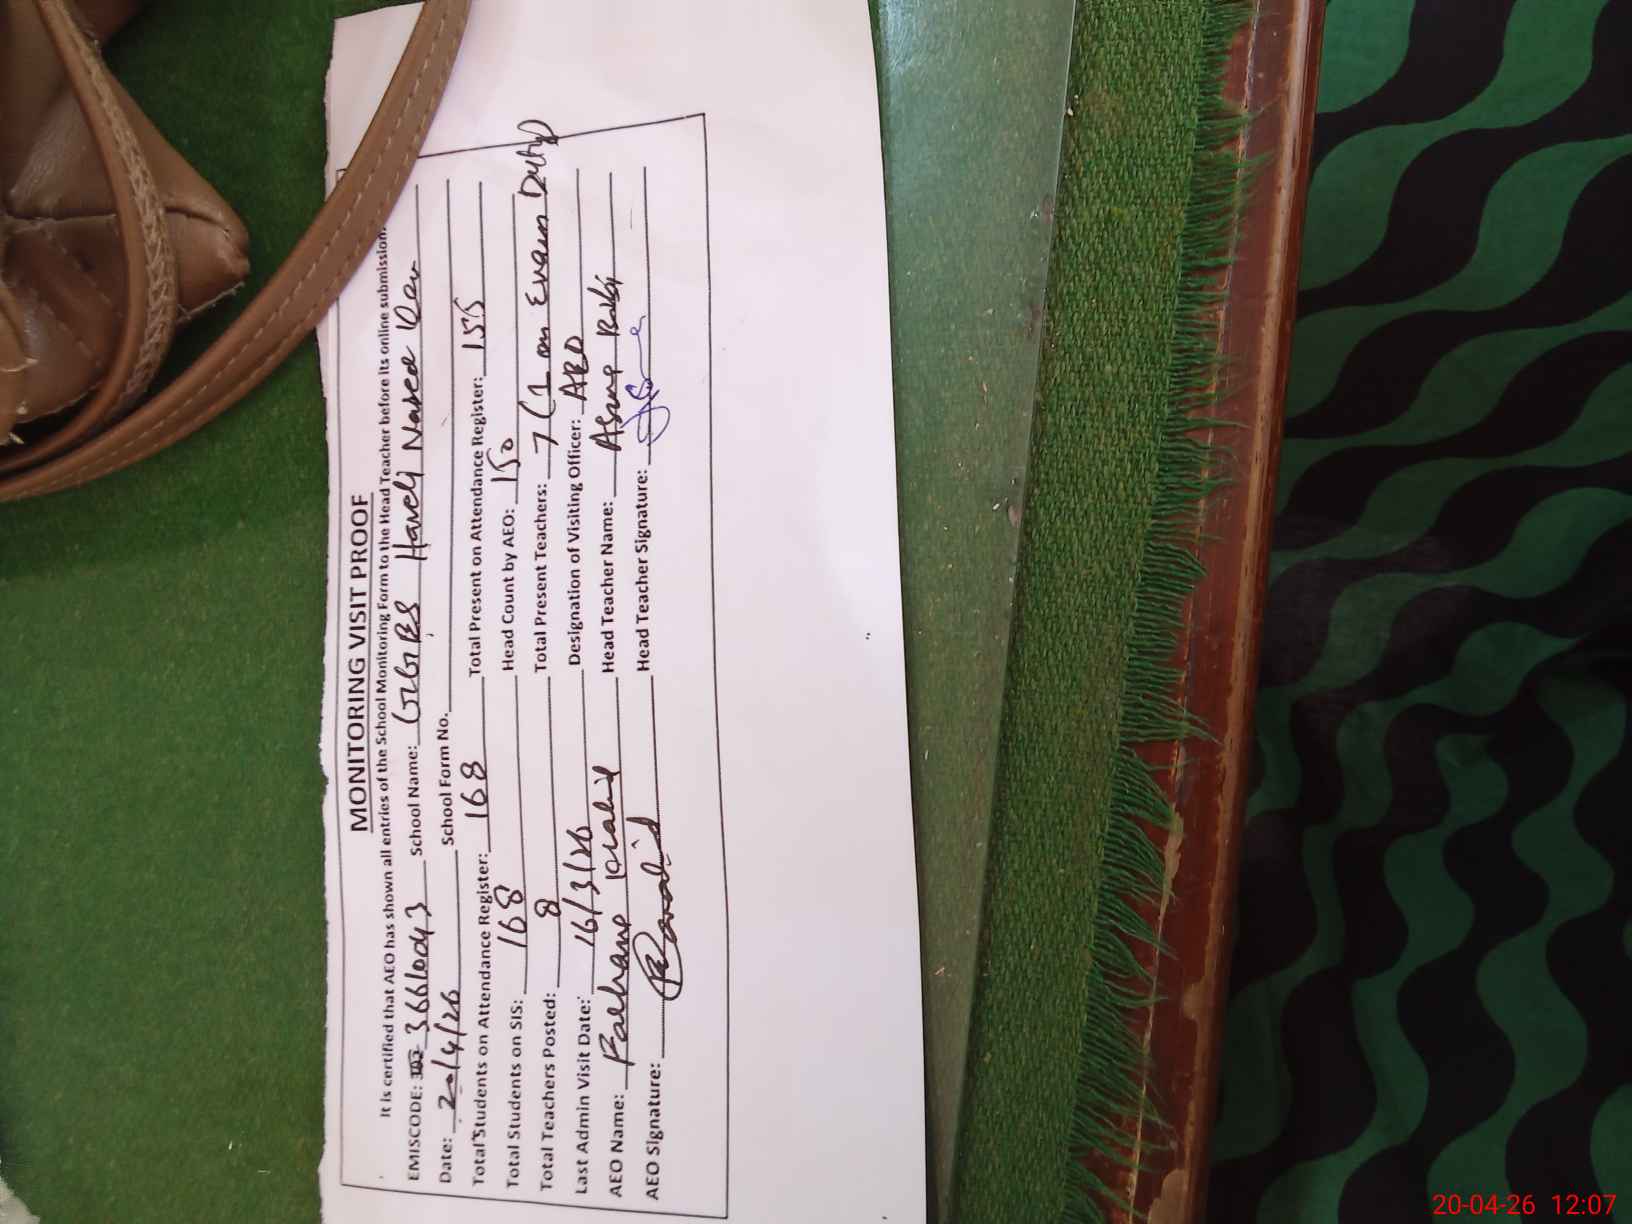 MONITORING VISIT PROOF
It is certified that AEO has shown all entries of the School Monitoring Form to the Head Teacher before its online submission.
EMISCODE: 36610043 School Name: GGPS Haveli Nased
Date: 20/4/26 School Form No.
Total Students on Attendance Register: 168 Total Present on Attendance Register: 155
Total Students on SIS: 168 Head Count by AEO: 150
Total Teachers Posted: 8 Total Present Teachers: 7 (1 on Exam Duty)
Last Admin Visit Date: 16/3/26 Designation of Visiting Officer: AEO
AEO Name: Farhana Khalid Head Teacher Name: Asma
AEO Signature: Head Teacher Signature:
20-04-26 12:07